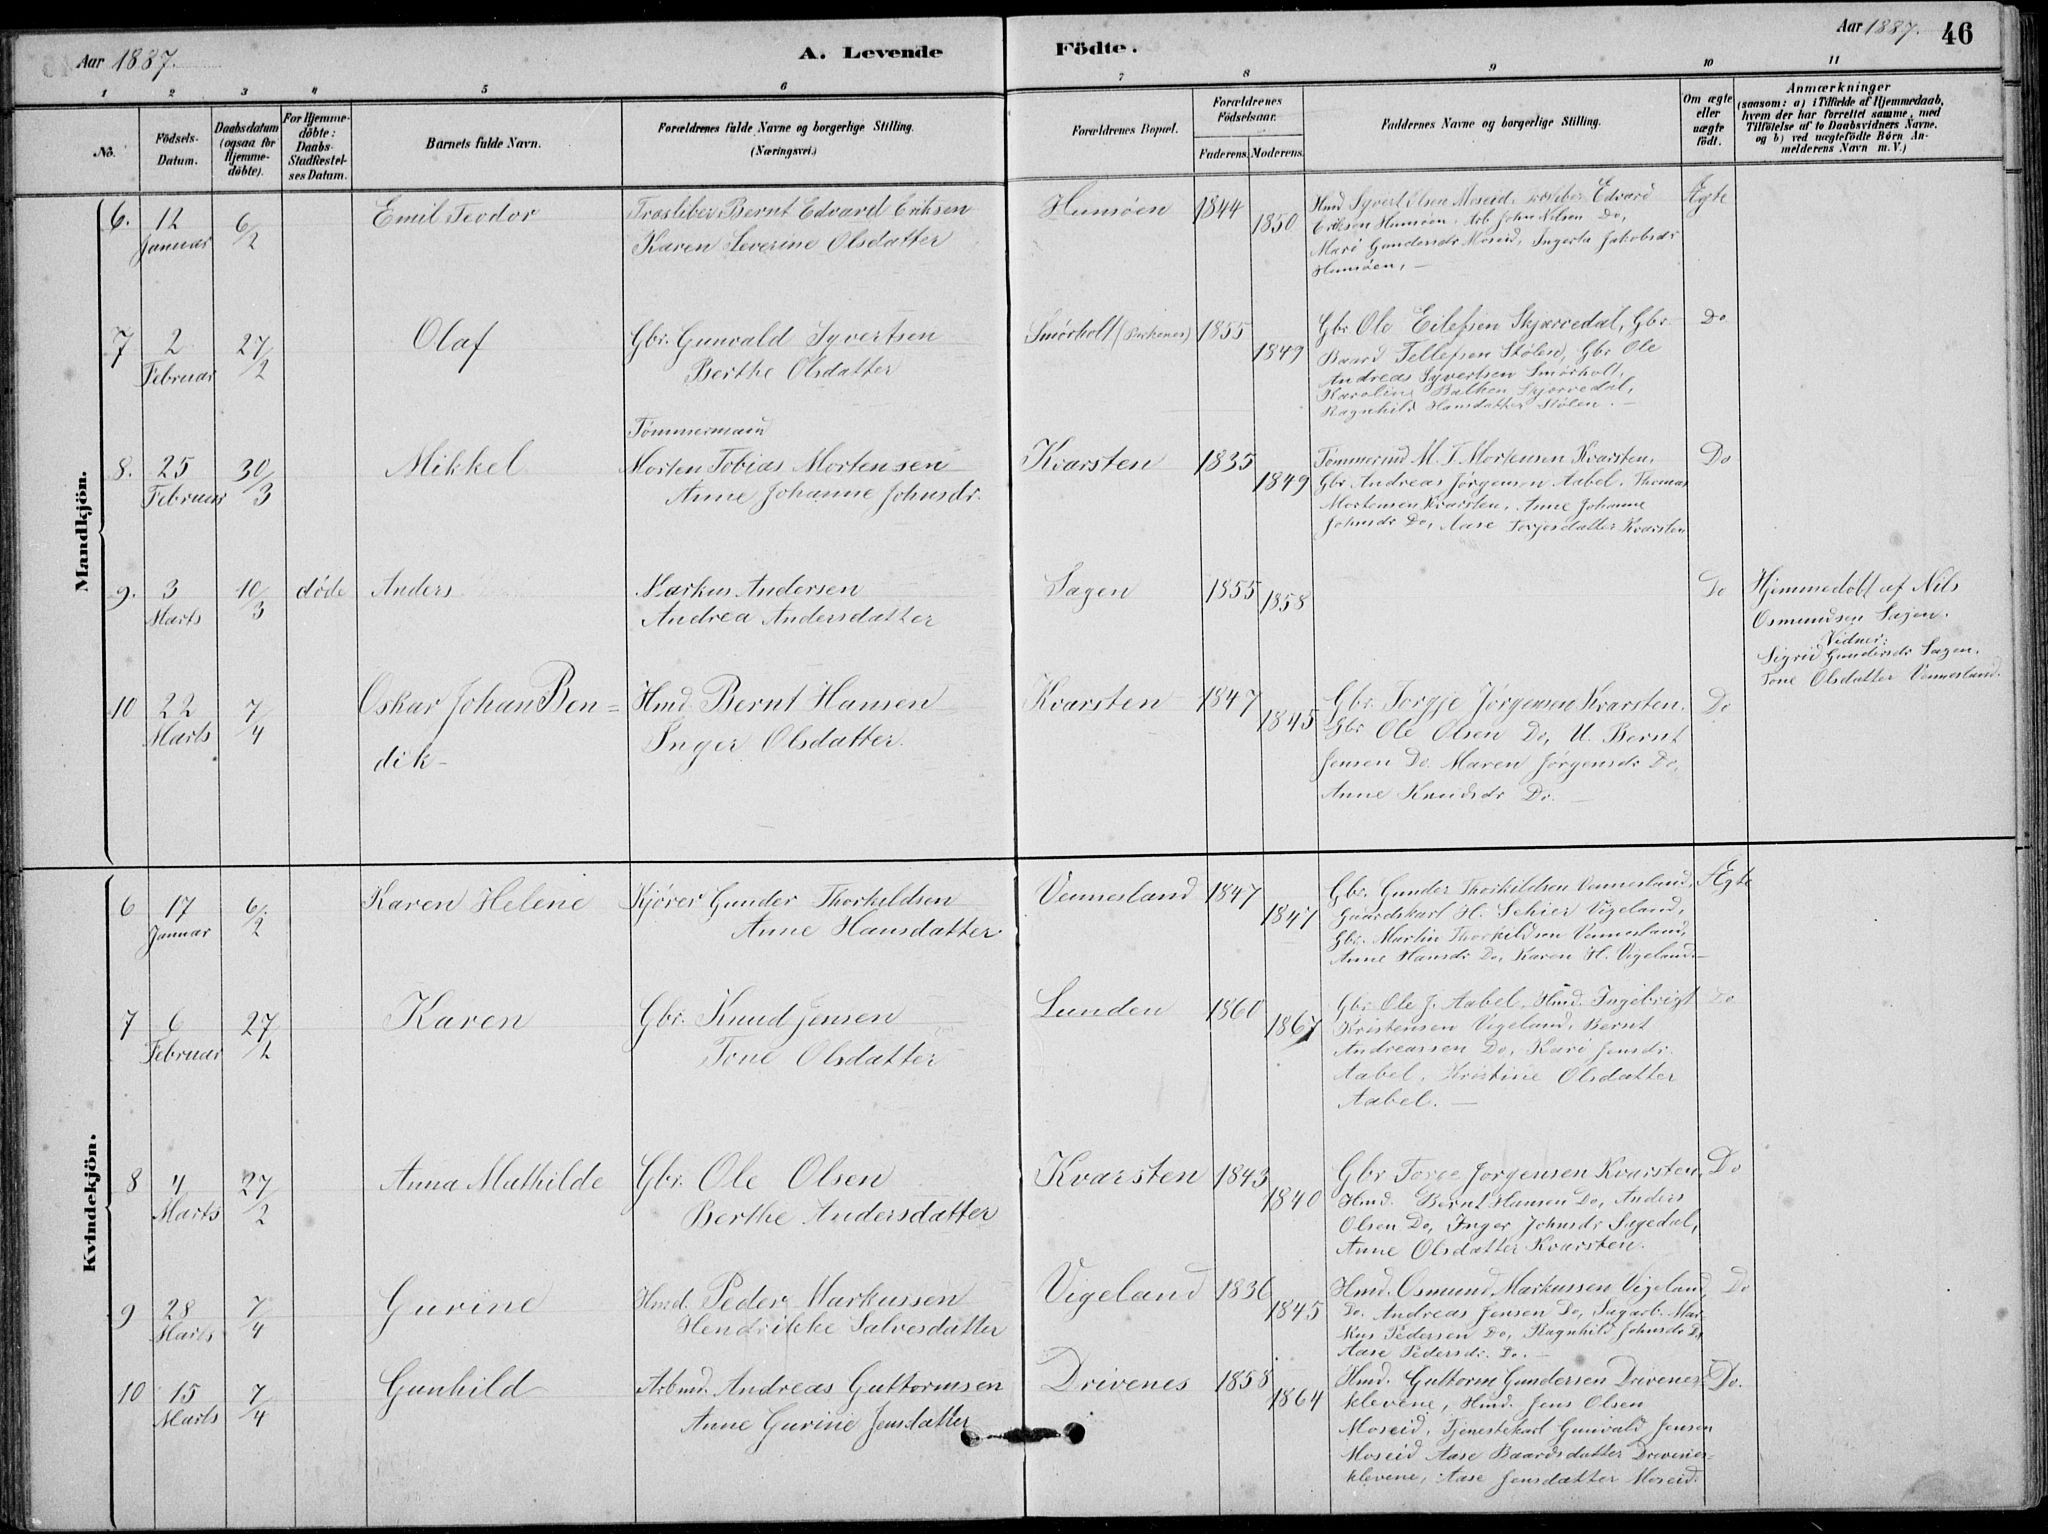 Aar 1887.
A. Levende Födte.
Aar 1887. 46
1 2 3 4 5 6 7 8 9 10 11
No.
Födsels-Datum.
Daabsdatum (ogsaa for Hjemmedøbte).
For Hjemmedöbte: Daabs-Stadfestelses Datum.
Barnets fulde Navn.
Forældrenes fulde Navne og borgerlige Stilling. (Næringsvei.)
Forældrenes Bopæl.
Forældrenes Födselsaar.
Faderens. Moderens.
Faddernes Navne og borgerlige Stilling.
Om ægte eller uægte födt.
Anmærkninger (saasom: a) i Tilfælde af Hjemmedaab, hvem der har forrettet samme, med Tilföielse af to Daabsvidners Navne, og b) ved uægtefödte Börn Anmelderens Navn m. V.)
Mandkjön.
6. 12 Januar 6/2 Emil Teodor
Træsliber Bernt Edvard Eriksen
Karen Severine Olsdatter
Hunsöen 1844 1850
Hmd Syvert Olsen Moseid, Edvard
Eriksen Hunsöen, Arb. John Nilsen Do,
Mari Gundersdr Moseid, Ingerta Jakobsdr
Hunsöen, —
Ægte
7 2 Februar 27/2 Olaf
Gbr. Gunvald Syvertsen
Berthe Olsdatter
Smørholt (Birkenes) 1855 1849
Gbr Ole Eilefsen Skjærvedal, Gbr.
Baard Tellefsen Stølen, Gbr Ole
Andreas Syvertsen Smørholt,
Karoline Skjærvedal,
Ragnhild Hansdatter Stølen. —
Do
8. 25 Februar 30/3 Mikkel
Tømmermand
Morten Tobias Mortensen
Anne Johanne Johnsdr.
Kvarsten 1835 1849
Tømmermd M. T. Mortensen Kvarsten,
Gbr Andreas Jørgensen Aabel, Thomas
Mortensen Kvarsten, Anne Johanne
Johnsdr Do, Aase Torjusdatter Kvarsten
Do
9. 3 Marts 10/3 døde Anders
Markus Andersen
Andrea Andersdatter
Sagen 1855 1858
Do
Hjemmedøbt af Nils
Osmundsen Sagen.
Vidner:
Sigrid Gundersdr Sagen.
Tone Olsdatter Vennesland.
10 22 Marts 7/4 Oskar Johan Ben=
dik-
Hmd Bernt Hansen
Inger Olsdatter.
Kvarsten 1847 1845
Gbr. Torgje Jørgensen Kvarsten,
Gbr Ole Olsen Do, U. Bernt
Jensen Do. Maren Jørgensdr Do,
Anne Knudsdr Do. —
Do
Kvindekjön.
6 17 Januar 6/2 Karen Helene
Kjører Gunder Thorkildsen
Anne Hansdatter
Vennesland 1847 1847
Gbr. Gunder Thorkildsen Vennesland,
Gaardskarl H. Schier Vigeland,
Gbr. Martin Thorkildsen Vennesland,
Anne Hansdr Do, Karen H. Vigeland —
Ægte
7 6 Februar 27/2 Karen
Gbr. Knud Jensen
Tone Olsdatter
Lunden 1860 1867
Gbr Ole J. Aabel, Hmd. Ingebrigt
Kristensen Vigeland, Bernt
Andreassen Do, Kari Jensdr.
Aabel, Kristine Olsdatter
Aabel. —
Do
8 4 Marts 27/2 Anna Mathilde
Gbr. Ole Olsen
Berthe Andersdatter
Kvarsten 1843 1840
Gbr Jørgensen Kvarsten,
Hmd. Bernt Hansen Do, Anders
Olsen Do, Inger Johnsdr Sagedal,
Anne Olsdatter Kvarsten.
Do
9 28 Marts 7/4 Gurine
Hmd. Peder Markussen
Hendrikke Salvesdatter
Vigeland 1836 1845
Hmd. Osmund Markussen Vigeland,
Do. Andreas Jensen Do, Sagarb. Mar-
kus Pedersen Do, Ragnhild Johnsdr Do,
Aase Pedersdr. Do. —
Do
10 15 Marts 7/4 Gunhild
Arbmd. Andreas Guttormsen
Anne Gurine Jensdatter
Drivenes 1858 1864
Hmd. Guttorm Gundersen Drivenes-
klevene, Hmd. Jens Olsen
Moseid, Tjenestekarl Gunvald Jensen
Moseid Aase Baardsdatter Drivenes-
klevene, Aase Jensdatter Moseid.
Do.